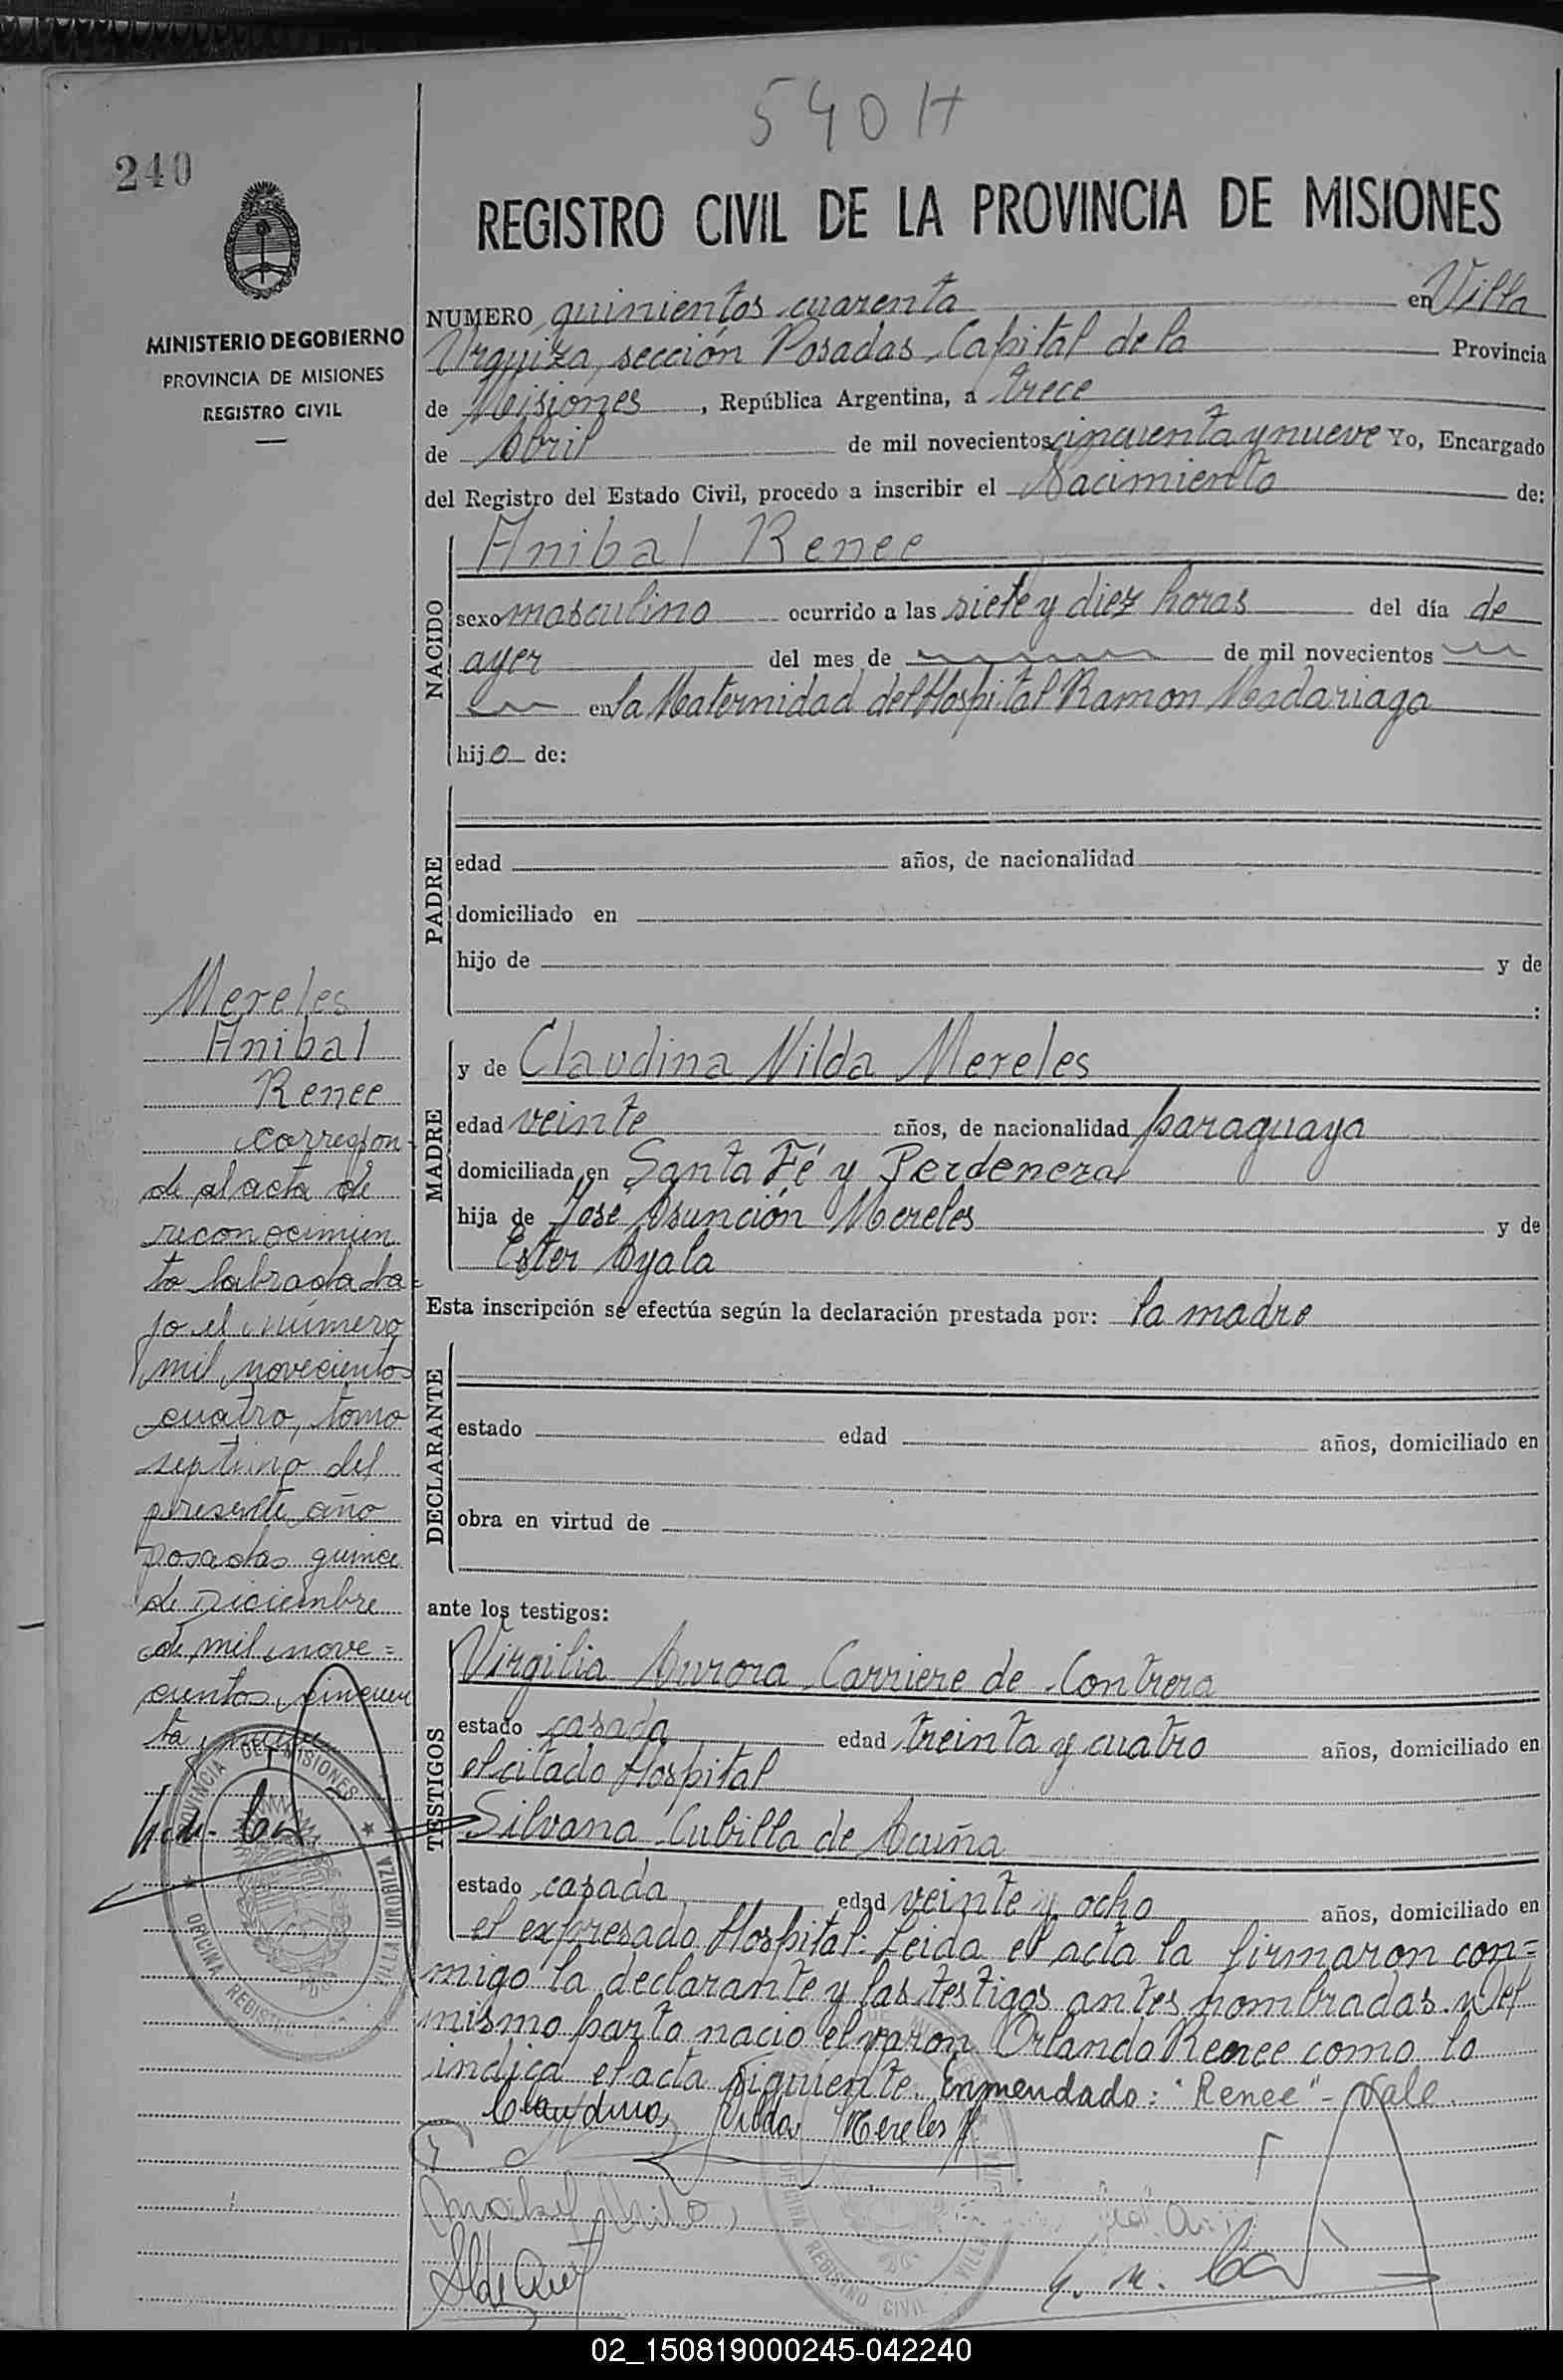 540 H
240
REGISTRO CIVIL DE LA PROVINCIA DE MISIONES
MINISTERIO DE GOBIERNO
PROVINCIA DE MISIONES
REGISTRO CIVIL
NUMERO quinientos cuarenta en Villa
Urquiza, sección Posadas, Capital de la Provincia
de Misiones, República Argentina, a trece
de Abril de mil novecientos cincuenta y nueve Yo, Encargado
del Registro del Estado Civil, procedo a inscribir el Nacimiento de:
NACIDO
Anibal Renee
sexo masculino ocurrido a las siete y diez horas del día de
ayer del mes de de mil novecientos
en la Maternidad del Hospital Ramon Madariaga
hijo de:
PADRE
edad años, de nacionalidad
domiciliado en
hijo de y de
:
MADRE
y de Claudina Nilda Mereles
edad veinte años, de nacionalidad paraguaya
domiciliada en Santa Fé y Perdenera
hija de José Asunción Mereles y de
Ester Ayala
Esta inscripción se efectúa según la declaración prestada por: la madre
DECLARANTE
estado edad años, domiciliado en
obra en virtud de
ante los testigos:
TESTIGOS
Virgilia Aurora Carriere de Contrera
estado casada edad treinta y cuatro años, domiciliado en
el citado Hospital
Silvana Cubilla de Acuña
estado casada edad veinte y ocho años, domiciliado en
el expresado Hospital: Leida el acta la firmaron con=
migo la declarante y las testigos antes nombradas. Del
mismo parto nacio el varon Orlando Renee como lo
indica el acta siguiente. Enmendado: "Renee" - Vale.
Claudina Nilda Mereles
Mereles
Anibal
Renee
correspon-
de al acta de
reconocimien
to labrada ba=
jo el número
mil novecientos
cuatro, tomo
septimo del
presente año
Posadas quince
de Diciembre
de mil nove=
cientos cincuen
ta y nueve
PROVINCIA DE MISIONES
OFICINA REGISTRO
VILLA URQUIZA
OFICINA REGISTRO CIVIL
02_150819000245-042240